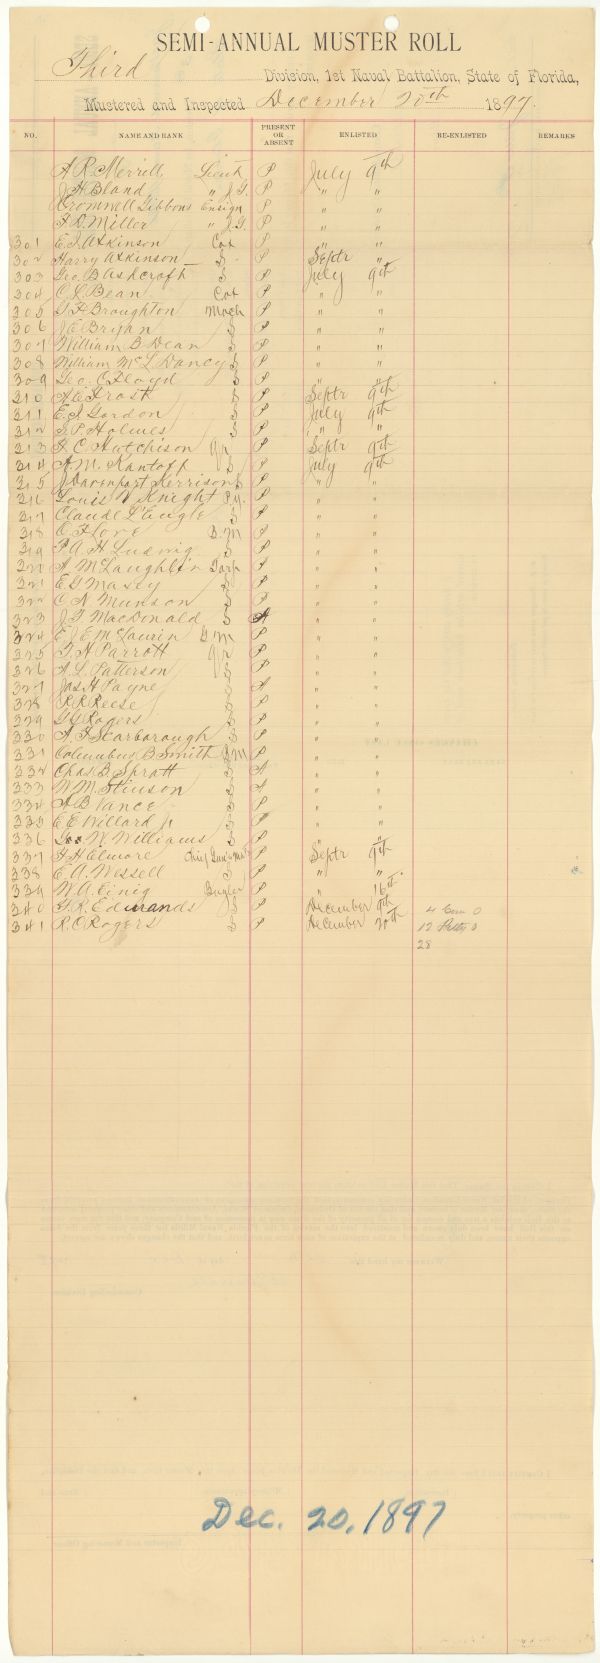 SEMI-ANNUAL MUSTER ROLL
Third Division, 1st Naval Battalion, State of Florida,
Mustered and Inspected December 20th 1897.
NO. NAME AND RANK PRESENT OR ABSENT ENLISTED RE-ENLISTED REMARKS
A. R. Merrill Lieut P July 9th
J. H. Bland " J.G. P " "
Cromwell Gibbons Ensign P " "
F. D. Miller " J.G. P " "
301 E. J. Atkinson Cox P " "
302 Harry Atkinson S P Septr "
303 Geo. B Ashcroft S P July 9th
304 C. L. Bean Cox P " "
305 G. F. Broughton Mach P " "
306 J. E. Bryan S P " "
307 William B Dean S P " "
308 William McL Dancy S P " "
309 Geo. C Floyd S P " "
310 A. E. Frost S P Septr 9th
311 E. A. Gordon S P July 9th
312 S. P. Holmes S P " "
313 F. C. Hutchison Qr P Septr 9th
314 A. M. Kantoff S P July 9th
315 J. Davenport Kerrison S P " "
316 Louis V Knight P.y. P " "
317 Claude L'Engle S P " "
318 C. F. Love B.M P " "
319 P. A. H Ludwig S P " "
320 A. McLaughlin Torp P " "
321 E. G Maxey S P " "
322 C. N Munson S P " "
323 J. F. MacDonald S A " "
324 E. J. E McLaurin G.M P " "
325 F. H Parrott Qr P " "
326 A. L. Patterson S P " "
327 Jas H Payne S A " "
328 R. R. Reese S P " "
329 G. G Rogers S P " "
330 A. F Scarborough S P " "
331 Columbus B Smith G.M P " "
332 Chas B. Spratt S A " "
333 W. M. Stinson S A " "
334 A B Vance S P " "
335 E E Willard Jr S P " "
336 Geo W. Williams S P " "
337 F. H Elmore Chief P Septr 9th
338 E. A. Wessell S P " "
339 W. A. Einig Bugler P " 16th
340 G. R. Edmands S P December 9th 4 Com O
341 R. C Rogers S P December 20th 12 Petty O
28
Dec. 20, 1897